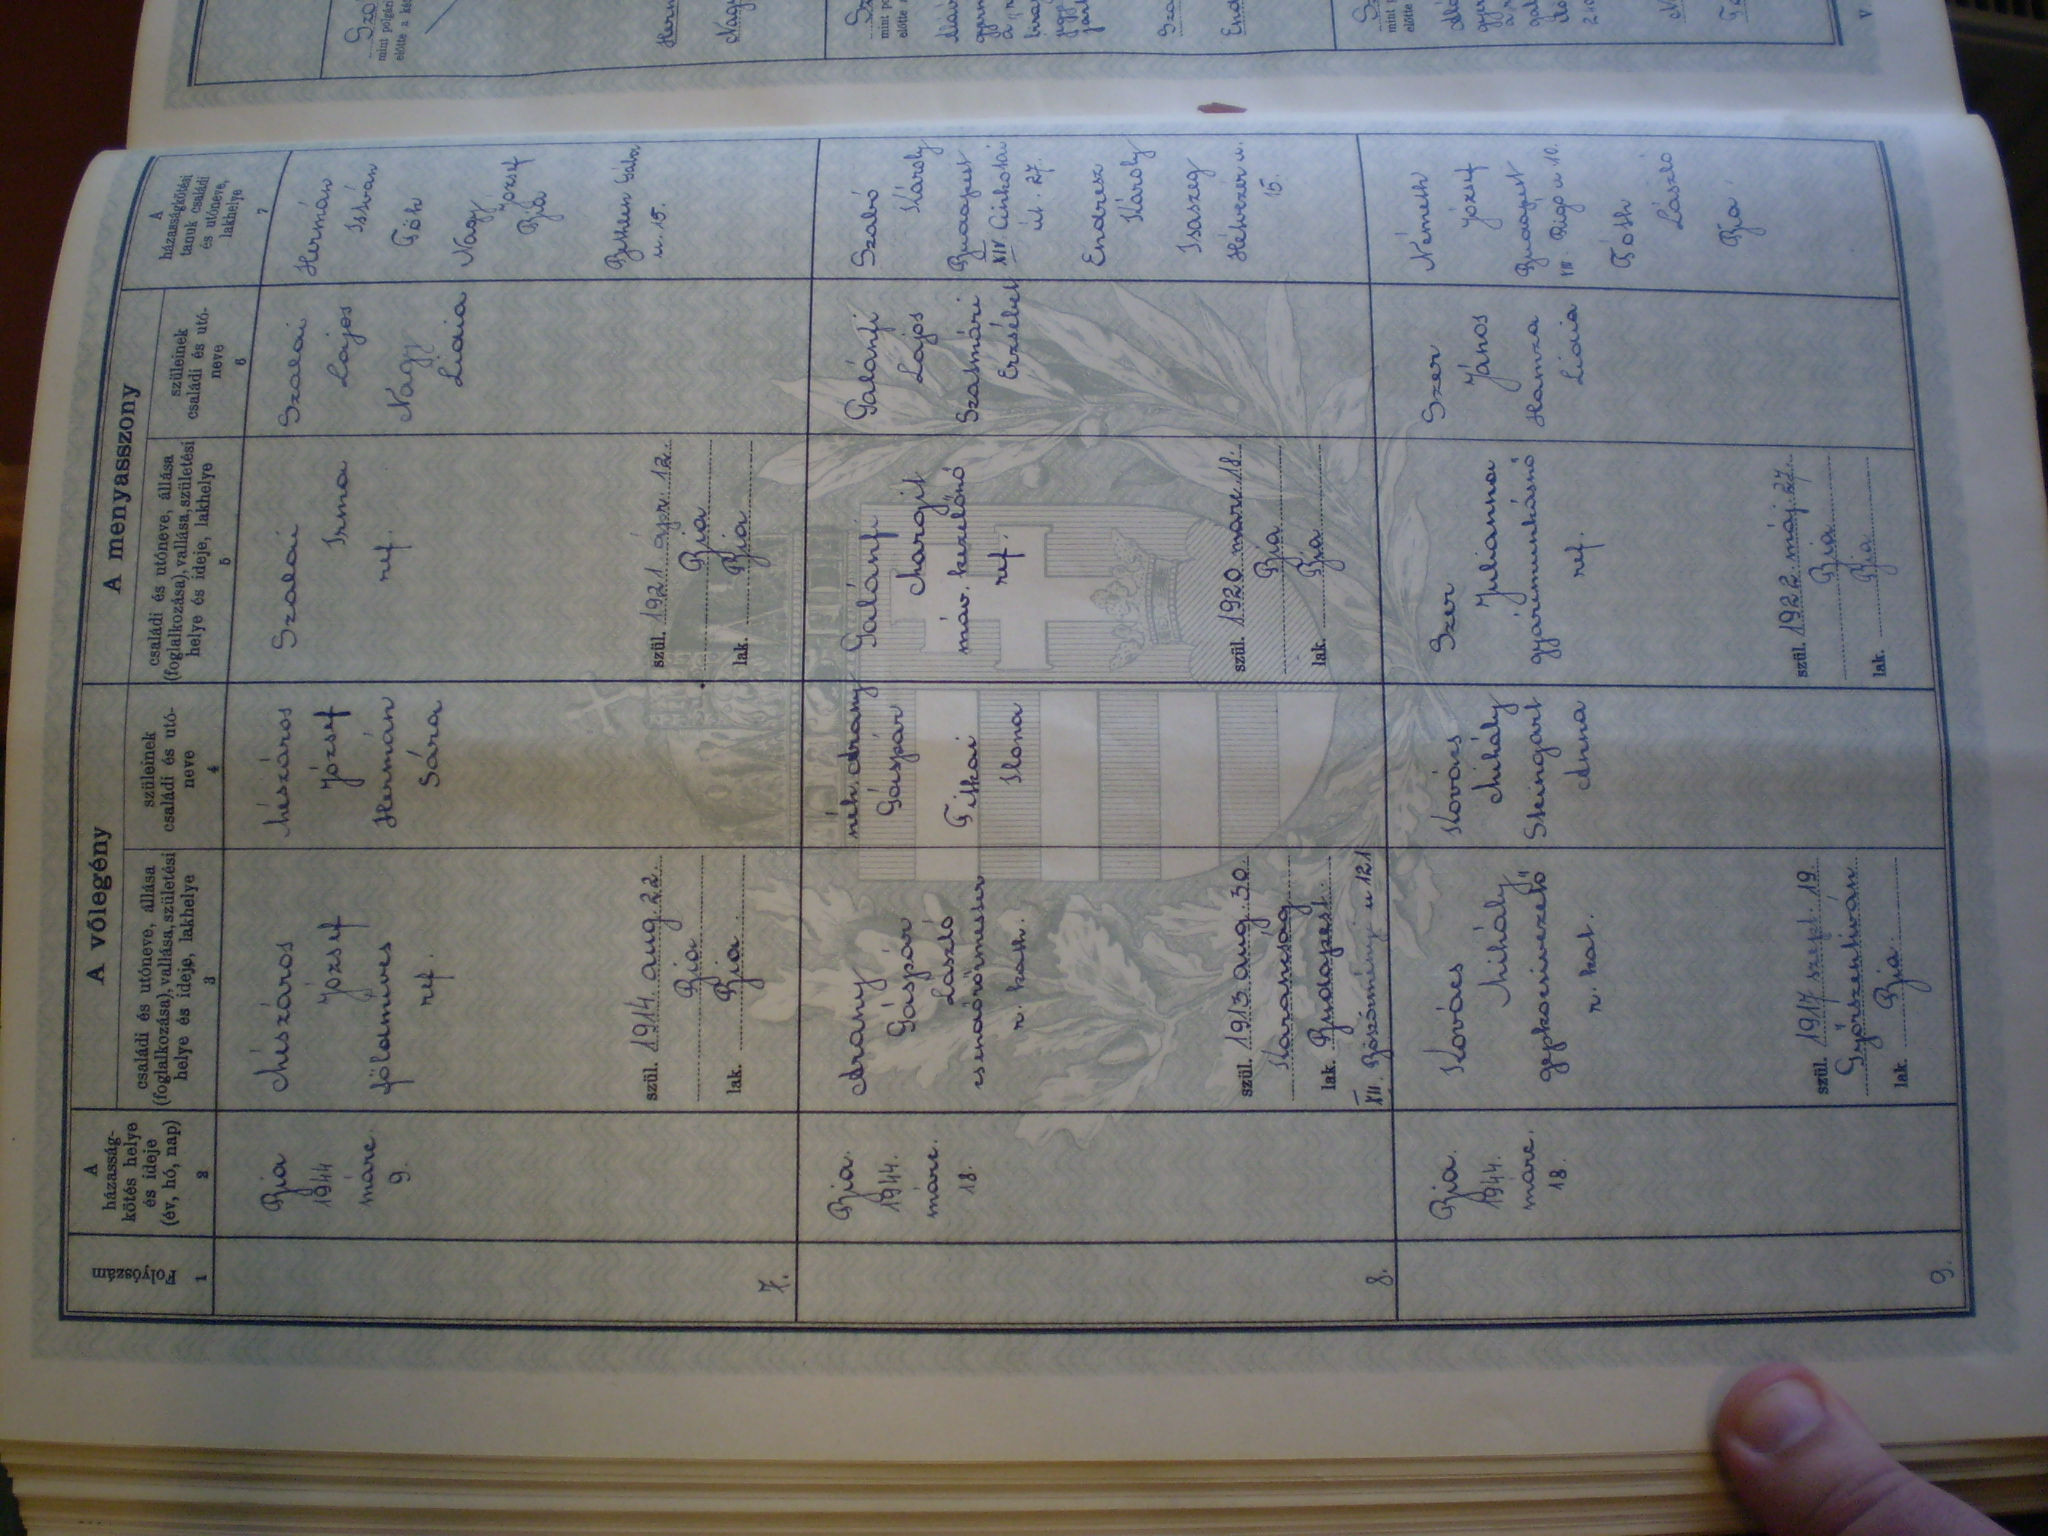 Folyószám
1
A
házasság-
kötés helye
és ideje
(év, hó, nap)
2
A vőlegény
családi és utóneve, állása
(foglalkozása), vallása, születési
helye és ideje, lakhelye
3
szüleinek
családi és utó-
neve
4
A menyasszony
családi és utóneve, állása
(foglalkozása), vallása, születési
helye és ideje, lakhelye
5
szüleinek
családi és utó-
neve
6
A
házasságkötési
tanuk családi
és utóneve,
lakhelye
7
7.
Bia
1944
márc.
9.
Mészáros
József
földműves
ref.
szül. 1914. aug. 22.
Bia
lak. Bia.
Mészáros
József
Hermán
Sára
Szalai
Irma
ref.
szül. 1921 ápr. 12.
Bia
lak. Bia
Szalai
Lajos
Nagy
Lidia
Hermán
István
Tóth
Nagy
József
Bia
Bethlen Gábor
u. 15.
8.
Bia.
1944.
márc.
18.
Arany
Gáspár
László
csendőrőrmester
r. kath.
szül. 1913 aug. 30.
Karancsság
lak. Budapest.
XII. Böszörményi u 121
néh. Arany
Gáspár
Titkai
Ilona
Galánfi
Margit
máv. kezelőnő
ref.
szül. 1920 marc. 18.
Bia
lak. Bia
Galánfi
Lajos
Szatmári
Erzsébet
Szabó
Károly
Budapest
XIV Cinkotai
út. 27.
Endresz
Károly
Isaszeg
Hétvezér u.
15.
9.
Bia.
1944.
márc.
18.
Kovács
Mihály
gépkocsivezető
r. kat.
szül. 1917 szept. 19.
Győrszentiván
lak. Bia.
Kovács
Mihály
Steingart
Anna
Szer
Julianna
gyárimunkásnő
ref.
szül. 1922. máj. 27.
Bia
lak. Bia
Szer
János
Hamza
Lidia
Németh
József
Budapest
VIII Rigó u 10.
Tóth
László
Bia